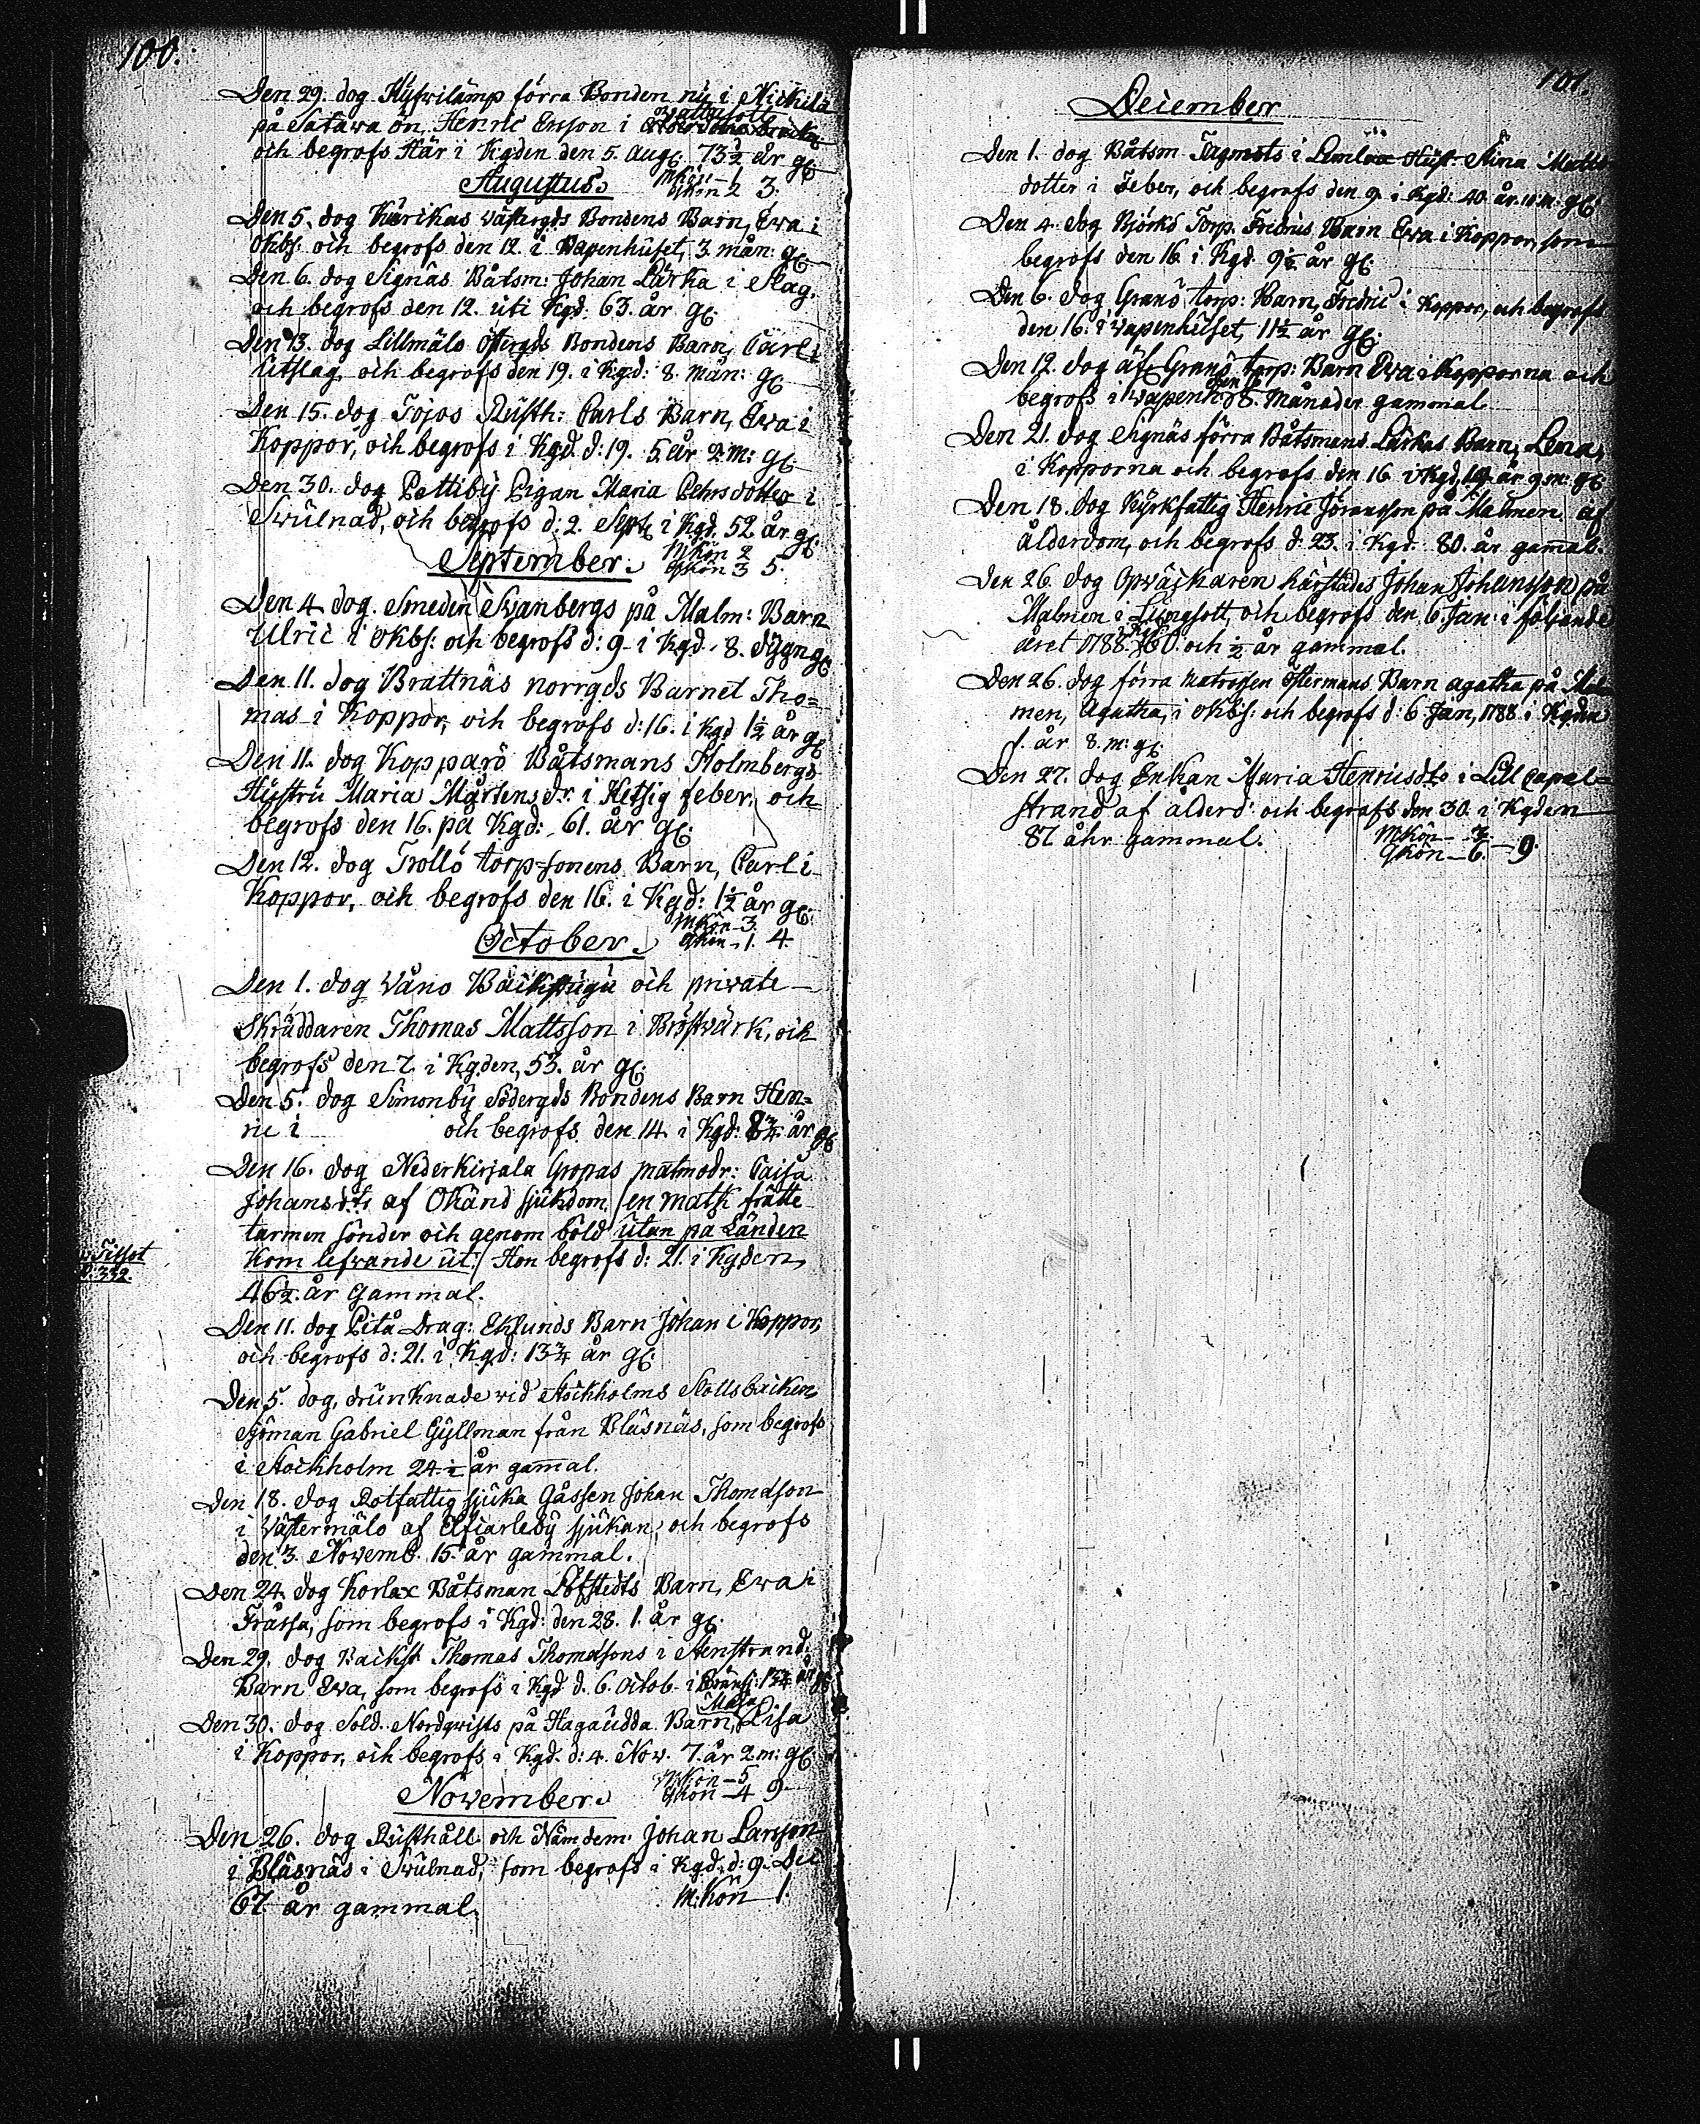 100.
Den 29. dog Kyfvilamp förra Bonden nu i Mickels
på Satava ön, Henric Ersson i
Vattusott
och begrofs Här i Kgden den 5. Aug: 73½ år gl:
Augustus.
Mkön 1
Qkön 2 3.
Den 5. dog Kärikas wästrgds Bondens Barn, Ewa i
Okbs: och begrofs den 12. i Wapenhuset, 3 mån: gl:
Den 6. dog Signäs Båtsm: Johan Lärka i Slag,
och begrofs den 12. uti Kgd: 63. år gl:
Den 13. dog Lillmälö östergds Bondens Barn, Carl i
Utslag, och begrofs den 19. i Kgd: 8. Mån: gl:
Den 15. dog Tojos Rusth: Carls Barn, Ewa i
Koppor, och begrofs i Kgd d: 19. 5. år 2 m: gl:
Den 30. dog Pettiby Pigan Maria Pehrsdotter i
Swulnad, och begrofs d: 2. Sept: i Kgd. 52 år gl:
September.
Mkön 2
Qkön 3 5.
Den 4. dog Smeden Swanbergs på Malm: Barn
Ulric i Okbs: och begrofs d: 9. i Kgd. 8. dygn gl:
Den 11. dog Brattnäs norrgds Barnet Tho=
mas i Koppor, och begrofs d: 16. i Kgd 1½ år gl:
Den 11. dog Kopparö Båtsmans Holmbergs
Hustru Maria Mårtens dr. i Hetsig feber, och
begrofs den 16. på Kgd: 61. år gl:
Den 12. dog Trollö torp=sonens Barn, Carl i
Koppor, och begrofs den 16. i Kgd: 1½ år gl:
October.
Mkön 3.
Qkön 1. 4.
Den 1. dog Våno och private
Skräddaren Thomas Mattsson i Bröstvärk, och
begrofs den 7. i Kgden, 53. år gl:
Den 5. dog Simonby Södergds Bondens Barn Hen=
ric i och begrofs den 14 i Kgd: 8¾ år gl:
Den 16. dog Nederkirjala Gropas matmodr: Caisa
Johansdtr af Okänd sjukdom, /en matk frätte
tarmen sönder och genom böld utan på Länden
Kom lefvande ut./ Hon begrofs d: 21. i Kgden,
46½ år Gammal.
Tissot
p. 332.
Den 11. dog Pitå Drag: Eklunds Barn Johan i Koppor,
och begrofs d: 21. i Kgd: 13¾ år gl:
Den 5. dog, drunknade vid Stockholms Slottsbacken
sjöman Gabriel Gyllman från Bläsnäs, som begrofs
i Stockholm 24½ år gamal.
Den 18. dog Rotfattig sjuka Gåssen Johan Thomasson
i Västermälö af Elfcarleby sjukan, och begrofs
den 3. Novemb. 15. år gammal.
Den 24. dog Korlax Båtsman Löfstedts Barn, Ewa i
Tråssa, som begrofs i Kgd: den 28. 1. år gl:
Den 29. dog Backst. Thomas Thomassons i Stenstrand:
Barn Ewa, som begrofs i Kgd d. 6. Octob. i 1¾ år gl:
Den 30. dog Sold. Nordqwists på Hagaudda Barn, Lisa
Maja
i Koppor, och begrofs i Kgd. d: 4. Nov. 7. år 2. m: gl:
November.
Mkön 5
Qkön 4 9
Den 26. dog Rusthåll: och Nämdem: Johan Larsson
i Bläsnäs i Swulnad, som begrofs i Kgd: d: 9. Dec
67 år gammal.
M:kön 1.
101.
December
Den 1. dog Båtsm Tagmots i Lemlax Hust: Stina Matts
dotter i Feber, och begrofs den 9. i Kgd: 40. år 10 m: gl:
Den 4. dog Björkö Torp. Fredrics Barn Ewa i Koppor, som
begrofs den 16 i Kgd. 9½ år gl:
Den 6. dog Granö torp: Barn, Fredric i Koppor, och begrofs
den 16. i Wapenhuset, 11½ år gl:
Den 12. dog äf: Granö torp: Barn Ewa i Kopporna och
den 16
begrofs i Wapenh: 8. Månader gammal.
Den 21. dog Signäs förra Båtsmans Lärkas Barn, Lena,
i Kopporna och begrofs den 16 i Kgd, år 9 m: gl:
Den 18. dog Kyrkfattig Henric Jöransson på Malmen af
ålderdom, och begrofs d. 23. i Kgd: 80. år gamal.
Den 26. dog Opwäckaren härstädes Johan Johansson på
Malmen i Lungsott, och begrofs den 6 Jan: i följande
året 1788. 60. och ½ år gammal.
Den 26. dog förra matrossen Östermans Barn agatha på Mal
men, Agatha, i Okbs: och begrofs d: 6 Jan, 1788 i Kgden
1. år 8. m: gl:
Den 27. dog Enkan Maria Henricsdtr i Lill Capel=
strand af ålderd: och begrofs den 30. i Kgden
87 åhr gammal.
Mkön 3
Qkön 6. 9.